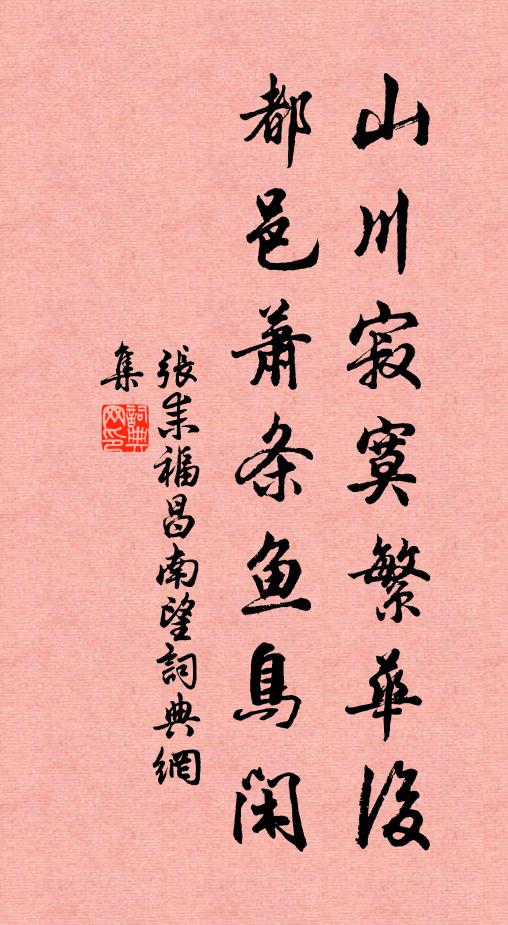 山川寂寞繁華後
都邑蕭条鱼鳥閑
張耒福昌南望詞典網
集
詞典
网印